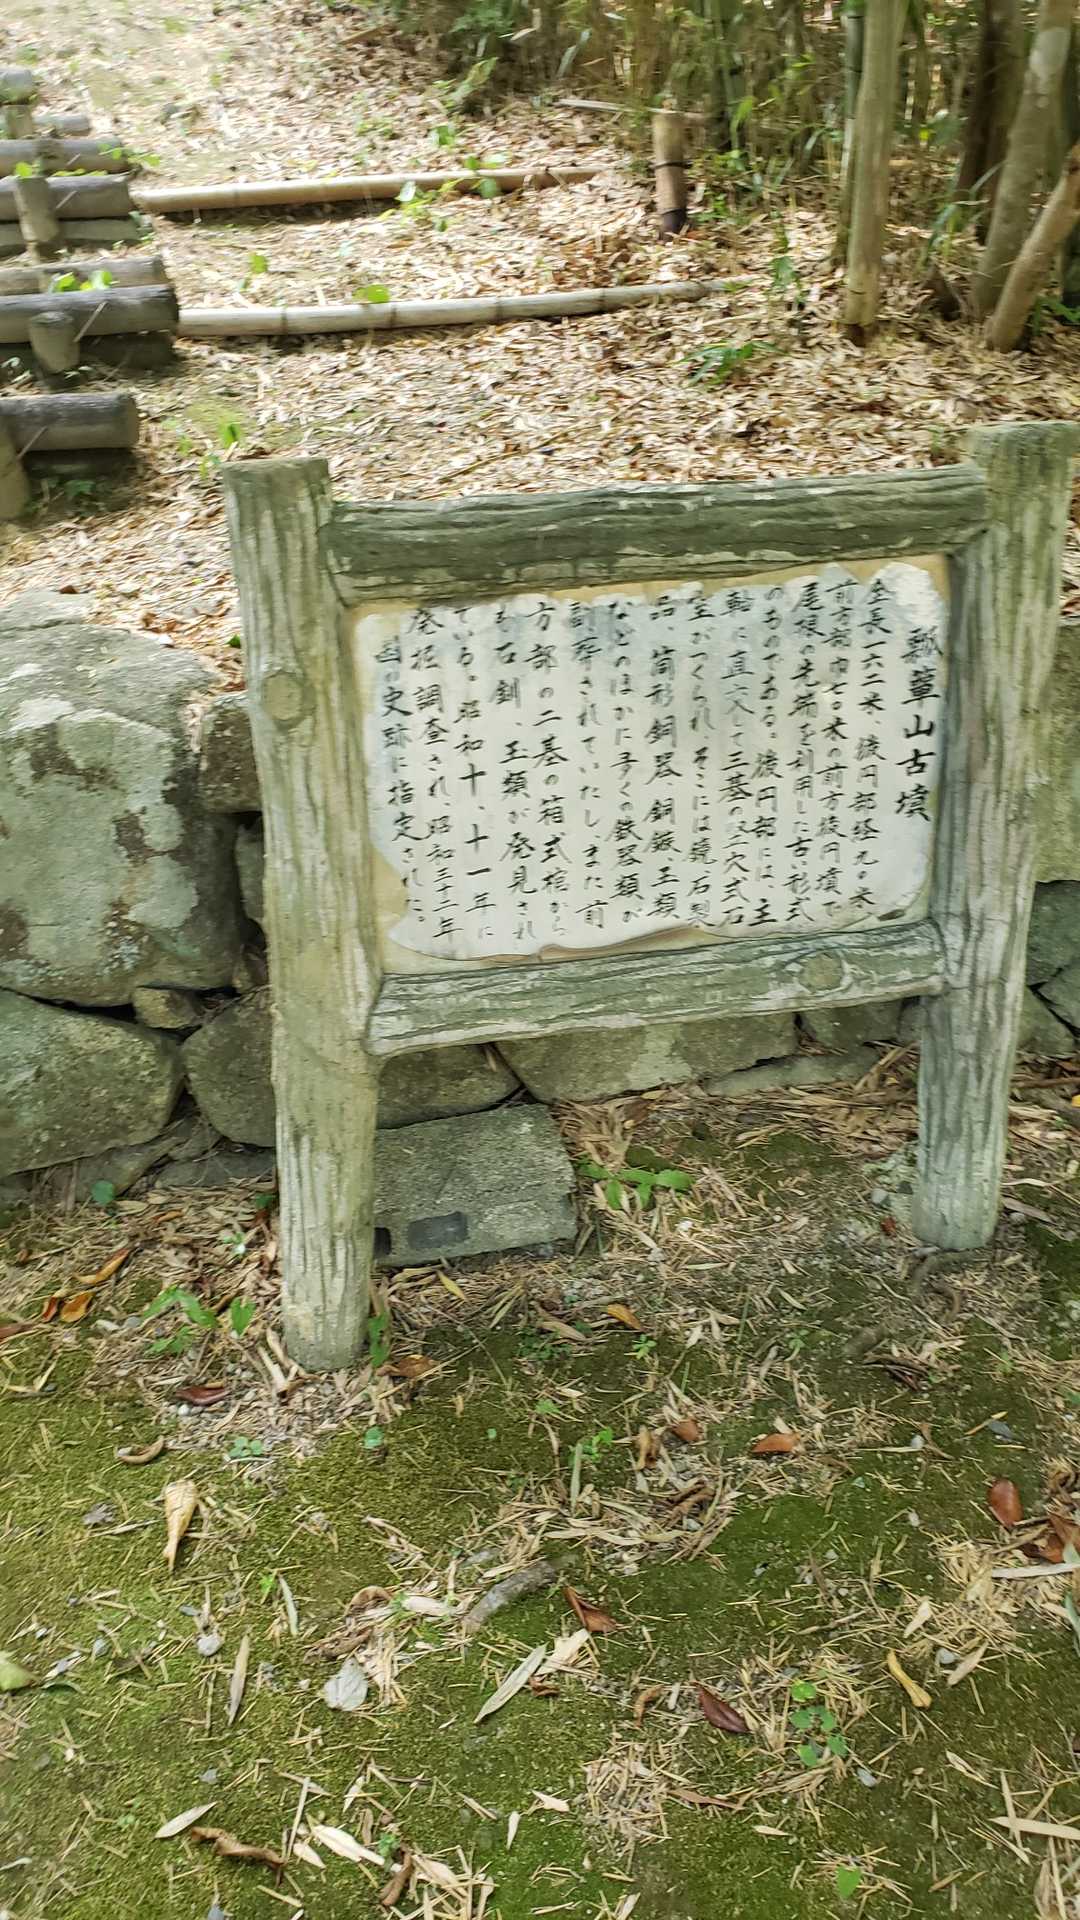 瓢箪山古墳
全長一六二米、後円部径九〇米、
前方部巾七〇米の前方後円墳で
尾根の先端を利用した古い形式
のものである。後円部には、主
軸に直交して三基の竪穴式石
室がつくられ、そこには鏡、石製
品、筒形銅器、銅鏃、玉類
などのほかに多くの鉄器類が
副葬されていたし、また前
方部の二基の箱式棺から
も石釧、玉類、が発見され
ている。昭和十、十一年に
発掘調査され、昭和三十二年
国の史跡に指定された。